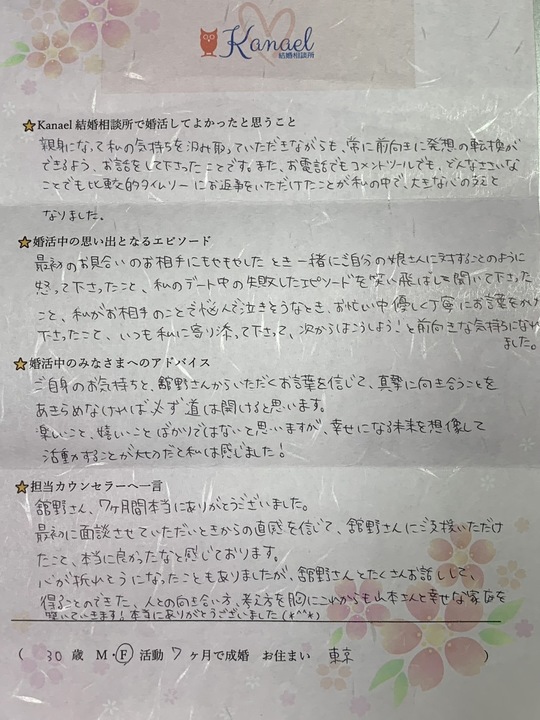 Kanael
結婚相談所
⭐Kanael 結婚相談所で婚活してよかったと思うこと
親身になって私の気持ちを汲み取っていただきながらも、常に前向きに発想の転換が
できるよう、お話をして下さったことです。また、お電話でもコメントツールでも、どんなささいな
ことでも比較的タイムリーにお返事をいただけたことが私の中で、大きな心の支えと
なりました。
⭐婚活中の思い出となるエピソード
最初のお見合いのお相手にもやもやしたとき一緒にご自分の娘さんに対することのように
怒って下さったこと、私のデート中の失敗したエピソードを笑い飛ばして聞いて下さった
こと、私がお相手のことで悩んで泣きそうなとき、お忙い中優しく丁寧にお言葉をかけ
下さったこと、いつも私に寄り添って下さって、次からはこうしよう!と前向きな気持ちになれ
ました。
⭐婚活中のみなさまへのアドバイス
ご自身のお気持ちと、舘野さんからいただくお言葉を信じて、真摯に向き合うことを
あきらめなければ必ず道は開けると思います。
楽しいこと、嬉しいことばかりではないと思いますが、幸せになる未来を想像して
活動することが大切だと私は感じました!
⭐担当カウンセラーへ一言
舘野さん、7ヶ月間本当にありがとうございました。
最初に面談させていただいときからの直感を信じて、舘野さんにご支援いただけ
たこと、本当に良かったなと感じております。
心が折れそうになったこともありましたが、舘野さんとたくさんお話しして、
得ることのできた、人との向き合い方、考え方を胸にこれからも山本さんと幸せな家庭を
築いていきます!本当にありがとうございました(*^^*)
( 30 歳 M・F 活動 7 ヶ月で成婚 お住まい 東京 )